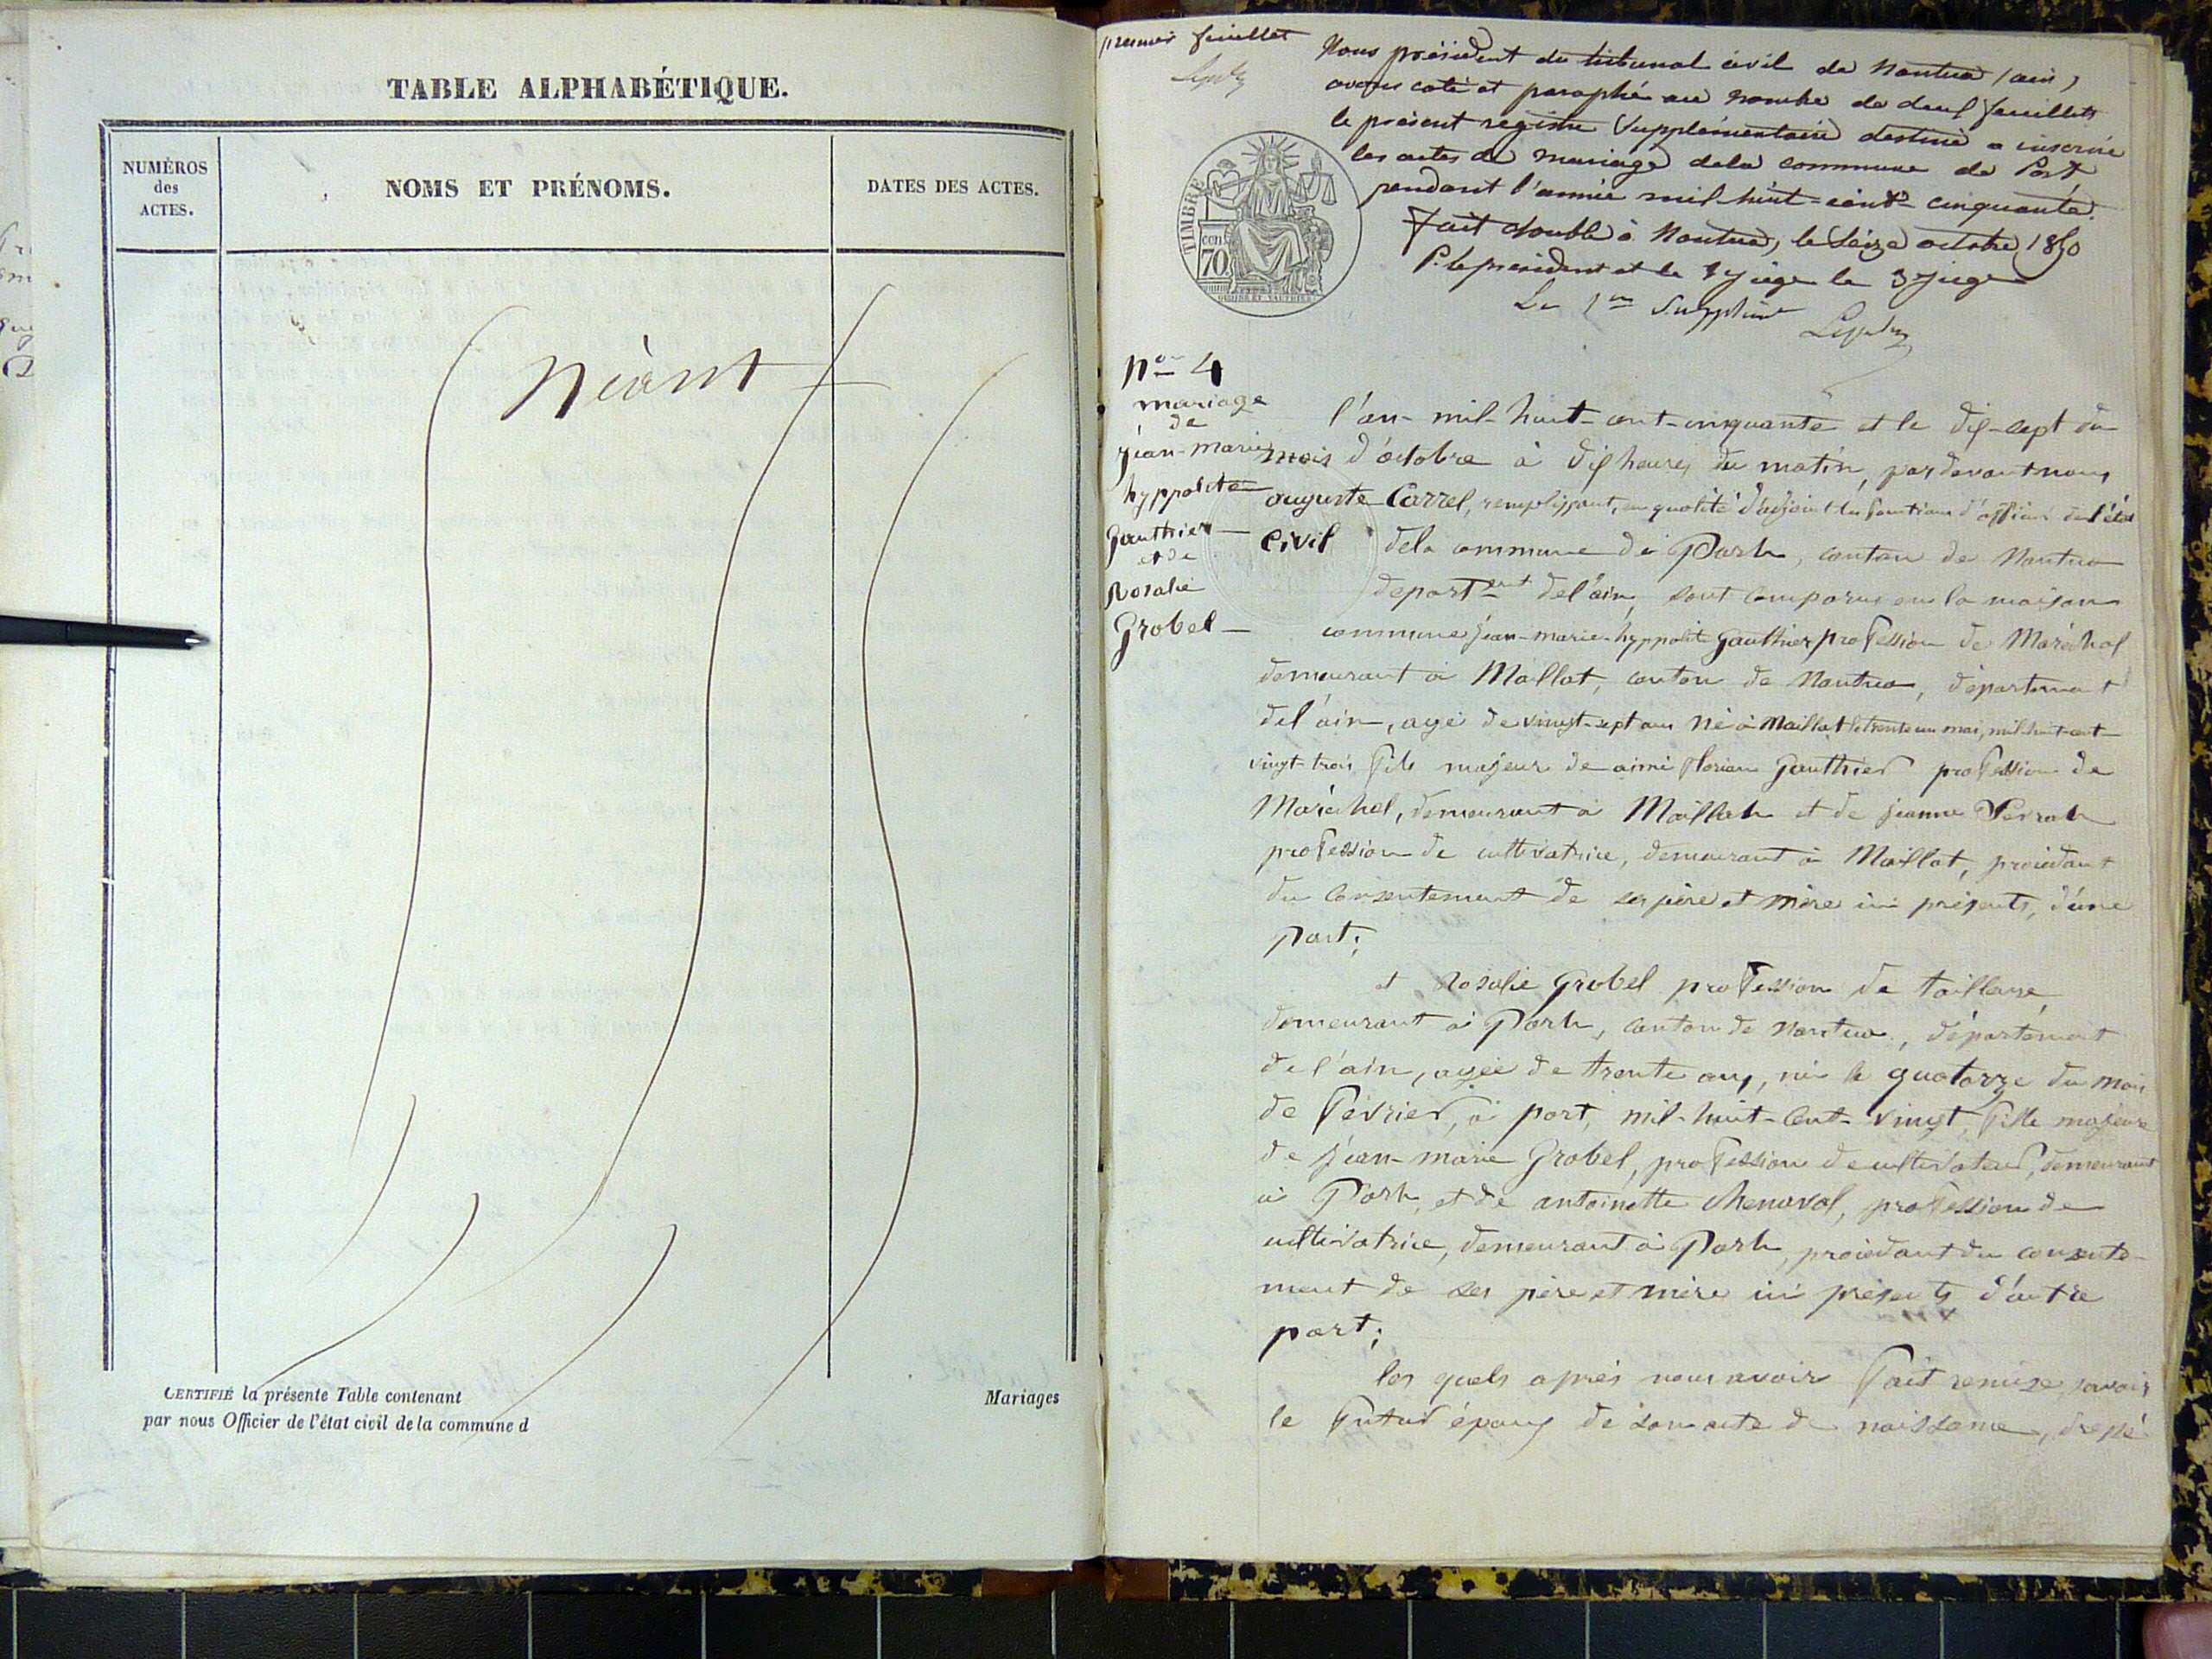 TABLE ALPHABÉTIQUE.
NUMÉROS
des
ACTES.
NOMS ET PRÉNOMS.
DATES DES ACTES.
Néant
CERTIFIÉ la présente Table contenant
Mariages
par nous Officier de l'état civil de la commune d
premier feuillet
Nous président du tribunal civil de Nantua (ain)
avons coté et paraphé au nombre de deux feuillets
le présent registre supplémentaire destiné a inscrire
les actes de mariage dela commune de Port
pendant l'année mil huit-cent-cinquante.
Fait double à Nantua, le seize octobre 1850
P. le président et le 2e juge le 3e juge
Le 1er Suppléant
TIMBRE
cen.
70
no 4
mariage
de
jean-marie
hyppolite
Gauthier
et de
Rosalie
Grobel
l'an-mil-huit-cent-cinquante et le dix-sept du
mois d'octobre à dix heures du matin, par devant nous
auguste Carrel, remplissant, en qualité d'adjoint les fonctions d'officier de l'état
civil dela commune de Port, canton de Nantua
departent de l'ain, sont comparus en la maison
commune jean-marie-hyppolite Gauthier profession de Maréchal
demeurant à Maillat, canton de Nantua, département
del'ain, agé de vingt-sept ans né à Maillat le trente un mai, mil huit-cent
vingt-trois fils majeur de aimé florian Gauthier profession de
Maréchal, demeurant à Maillat et de jeanne Perrat
profession de cultivatrice, demeurant à Maillat, procédant
du consentement de ses père et mère ici présents, d'une
part;
et Rosalie Grobel profession de tailleuse
demeurant à Port, canton de Nantua, département
de l'ain, agée de trente ans, née le quatorze du mois
de février, à port, mil-huit-cent-vingt, fille majeure
de jean-marie Grobel, profession de cultivateur, demeurant
à Port, et de antoinette chenaval, profession de
cultivatrice, demeurant à Port, procédant du consente-
ment de ses père et mère ici présents d'autre
part;
les quels après nous avoir fait remise, savoir
le futur époux de son acte de naissance,